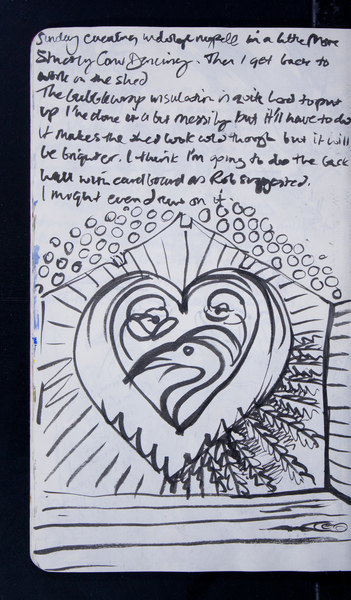 Sunday evening indulge myself in a little more
Strictly Come Dancing. Then I get back to
work on the shed
The bubblewrap insulation is quite hard to put
up I've done it a bit messily but it'll have to do
It makes the shed look cold though but it will
be brighter. I think I'm going to do the back
wall with cardboard as Rob suggested.
I might even draw on it.